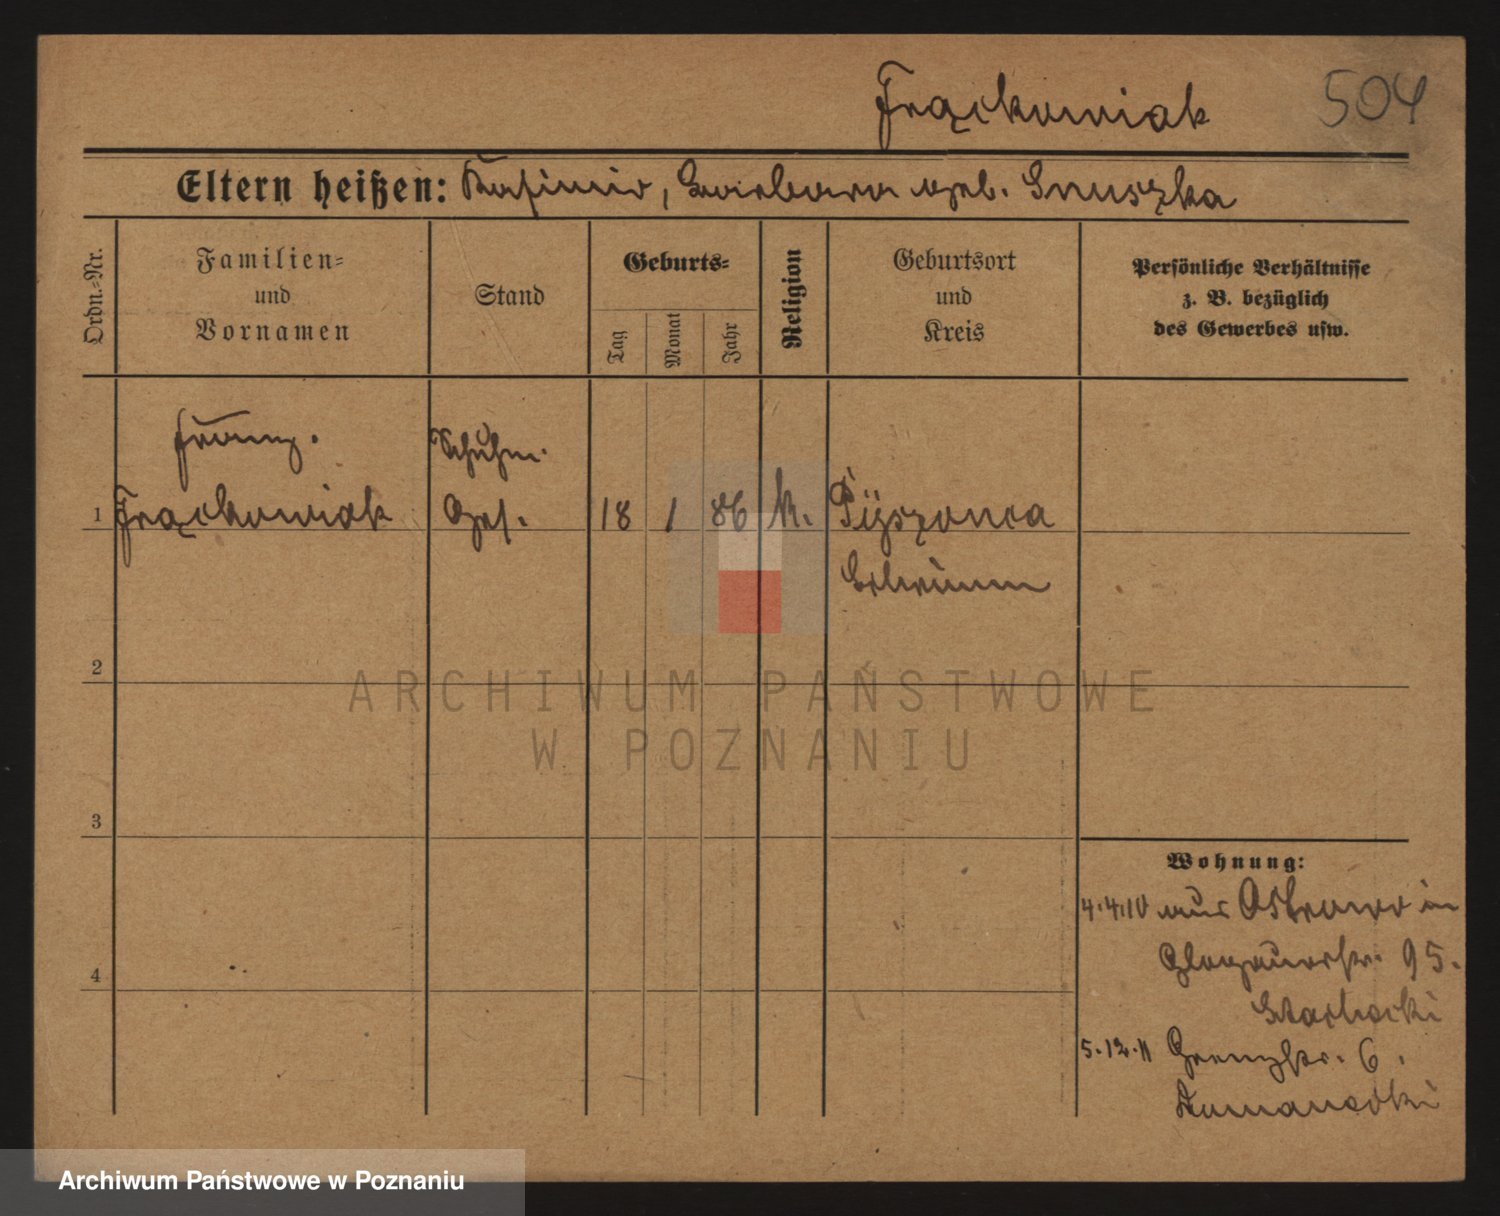 Frąckowiak 504
Eltern heißen: Kasimir, Barbara geb. Gnuszka
Ordn.-Nr.
Familien-
und
Vornamen
Stand
Geburts-
Tag
Monat
Jahr
Religion
Geburtsort
und
Kreis
Persönliche Verhältnisse
z. B. bezüglich
des Gewerbes usw.
Franz.
Schuhm.
1 Frąckowiak Ges. 18 1 86 k. Pyszonca
Schrimm
2
3
4
Wohnung:
4.4.10 aus Ostrowo in
Glogauerstr. 95.
5.12.11 Grenzstr. 6.
ARCHIWUM PAŃSTWOWE
W POZNANIU
Archiwum Państwowe w Poznaniu